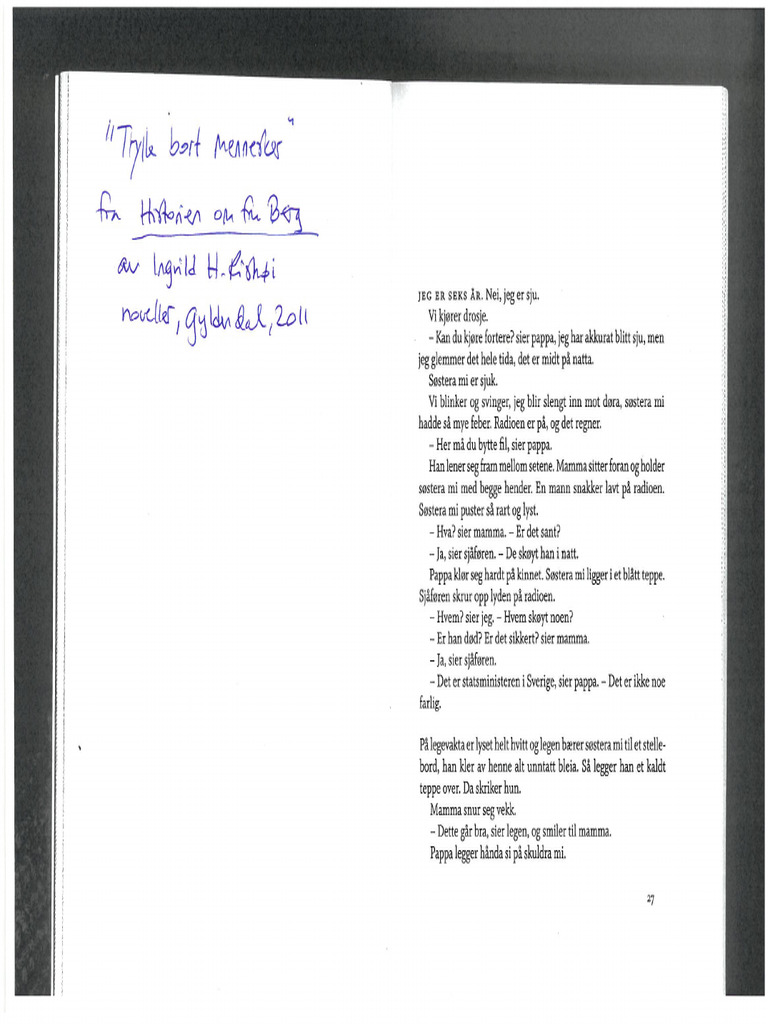 "Trylle bort mennesker"
fra Historien om fru Berg
av Ingvild H. Rishøi
noveller, Gyldendal, 2011
JEG ER SEKS ÅR. Nei, jeg er sju.
Vi kjører drosje.
– Kan du kjøre fortere? sier pappa, jeg har akkurat blitt sju, men
jeg glemmer det hele tida, det er midt på natta.
Søstera mi er sjuk.
Vi blinker og svinger, jeg blir slengt inn mot døra, søstera mi
hadde så mye feber. Radioen er på, og det regner.
– Her må du bytte fil, sier pappa.
Han lener seg fram mellom setene. Mamma sitter foran og holder
søstera mi med begge hender. En mann snakker lavt på radioen.
Søstera mi puster så rart og lyst.
– Hva? sier mamma. – Er det sant?
– Ja, sier sjåføren. – De skøyt han i natt.
Pappa klør seg hardt på kinnet. Søstera mi ligger i et blått teppe.
Sjåføren skrur opp lyden på radioen.
– Hvem? sier jeg. – Hvem skøyt noen?
– Er han død? Er det sikkert? sier mamma.
– Ja, sier sjåføren.
– Det er statsministeren i Sverige, sier pappa. – Det er ikke noe
farlig.
På legevakta er lyset helt hvitt og legen bærer søstera mi til et stelle-
bord, han kler av henne alt unntatt bleia. Så legger han et kaldt
teppe over. Da skriker hun.
Mamma snur seg vekk.
– Dette går bra, sier legen, og smiler til mamma.
Pappa legger hånda si på skuldra mi.
27